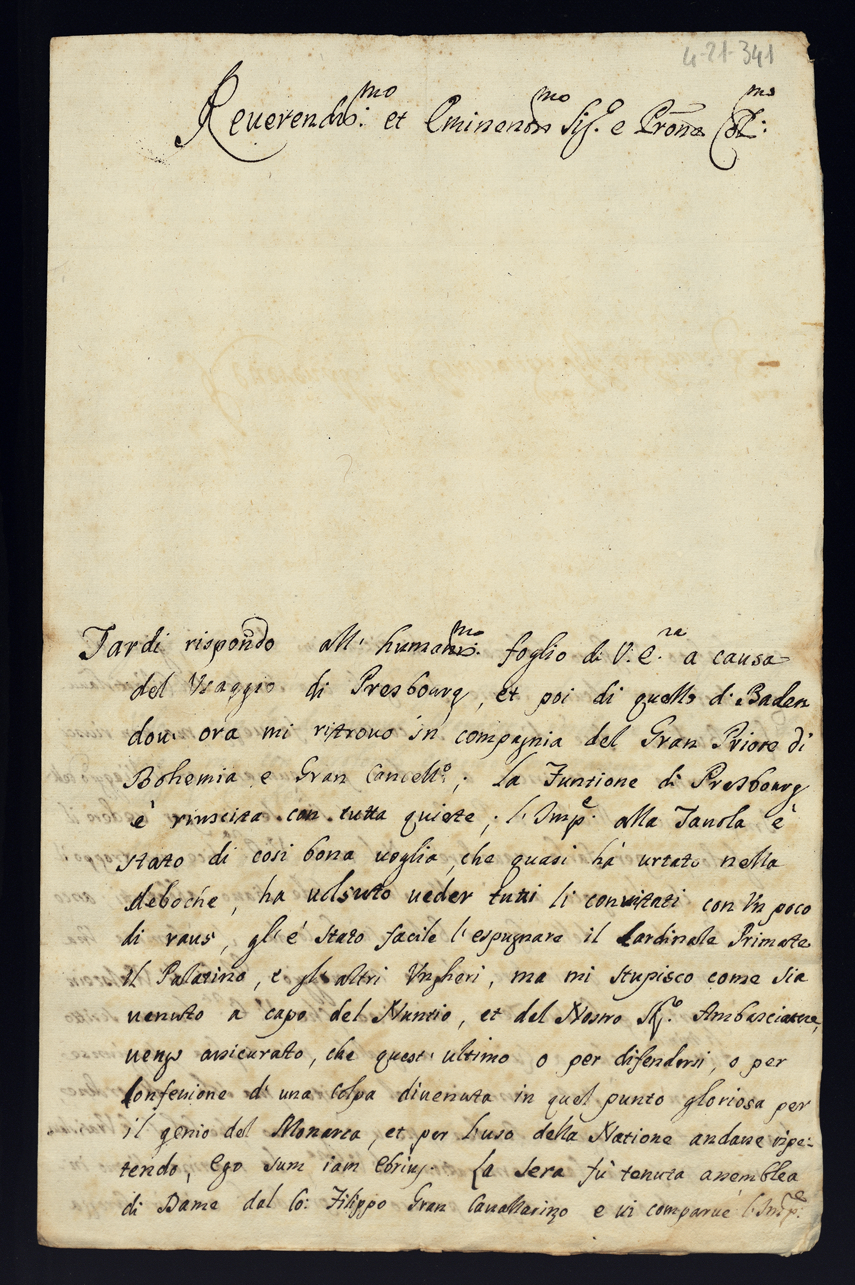 4-21-341
Reuerendis:mo et Eminenmo Sig.e e Prone Col:mo
Tardi rispondo all' humanis.mo foglio di V. E.za a causa
del Viaggio di Presbourg, et poi di quello di Baden
doue ora mi ritrouo in compagnia del Gran Priore di
Bohemia, e Gran Cancell.o; la Funtione di Presbourg
è riuscita con tutta quiete; l'Imp.e alla Tauola è
stato di cosi bona uoglia, che quasi há urtato nella
deboche, ha uolsuto ueder tutti li conuitati con Vn poco
di raus, gl' é stato facile l'espugnare il Cardinale Primate
il Palatino, e gl' altri Vngheri, ma mi stupisco come sia
uenuto a capo del Nuntio, et del Nostro Sig.e Ambasciatore,
uengo assicurato, che quest' ultimo o per difendersi, o per
Confessione d' una Colpa diuenuta in quel punto gloriosa per
il genio del Monarca, et per l'uso della Natione andaue ripe-
tendo, Ego sum iam Ebrius. La sera fu tenuta assemblea
di Dame dal Co: Filippo Gran Cauallarizo e ui comparue l'Imp.e